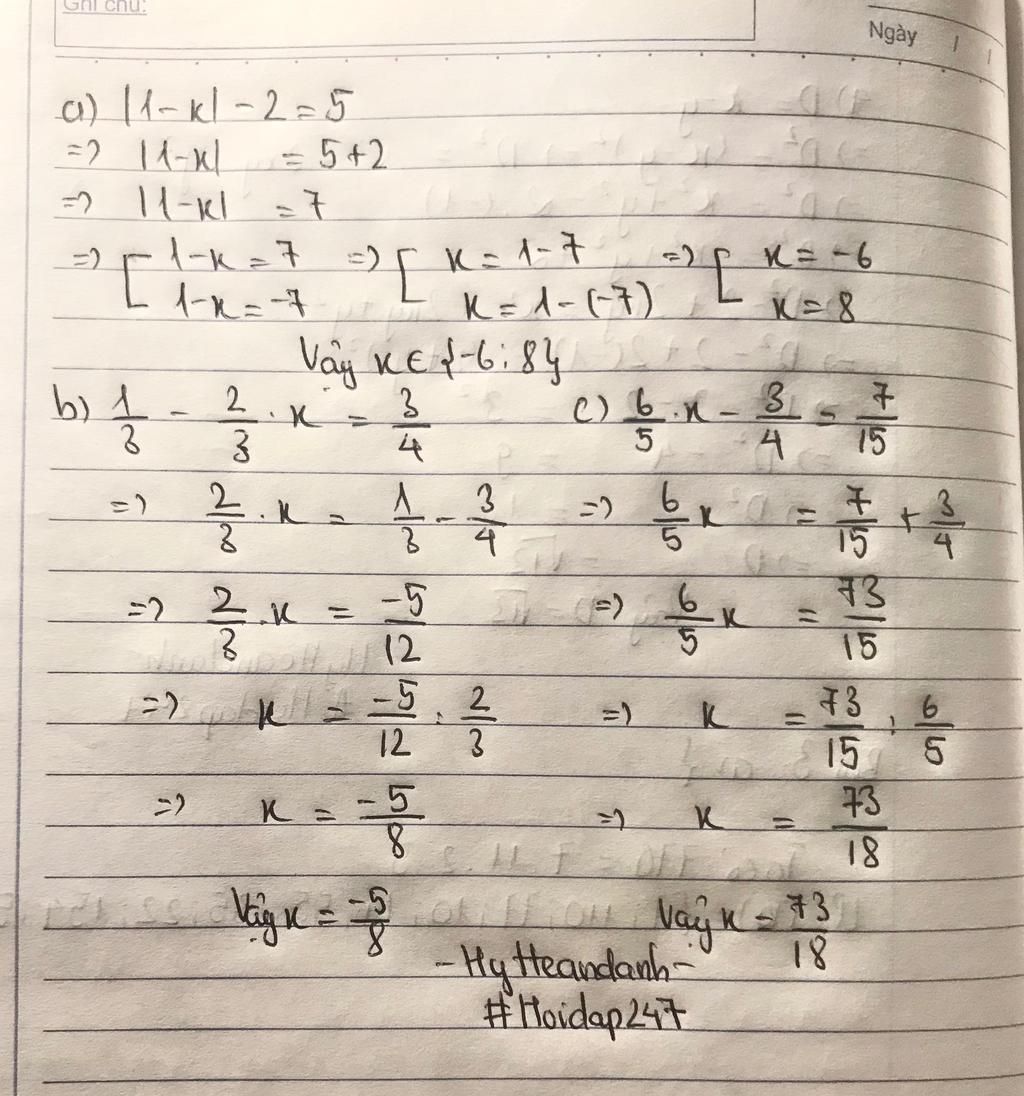 Ghi chú:
Ngày / /
a) |1-x| - 2 = 5
=> |1-x| = 5+2
=> |1-x| = 7
=> [ 1-x = 7 => [ x = 1-7 => [ x = -6
1-x = -7 x = 1-(-7) x = 8
Vậy x ∈ {-6; 8}
b) 1/3 - 2/3 . x = 3/4
=> 2/3 . x = 1/3 - 3/4
=> 2/3 . x = -5/12
=> x = -5/12 : 2/3
=> x = -5/8
Vậy x = -5/8
c) 6/5 . x - 3/4 = 7/15
=> 6/5 x = 7/15 + 3/4
=> 6/5 x = 73/15
=> x = 73/15 : 6/5
=> x = 73/18
Vậy x = 73/18
- HyHeandanh -
#Hoidap247